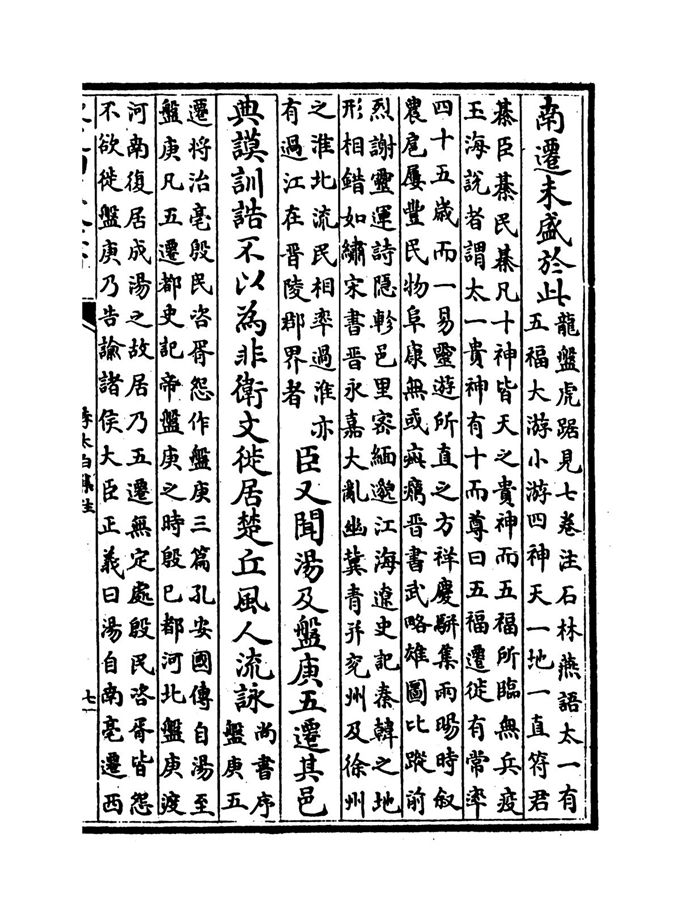 南遷未盛於此
龍盤虎踞見七卷注石林燕語太一有
五福大游小游四神天一地一直符君
綦臣綦民綦凡十神皆天之貴神而五福所臨無兵疫
玉海說者謂太一貴神有十而尊曰五福遷徙有常率
四十五歲而一易靈遊所直之方祥慶駢集雨暘時叙
農扈屢豐民物阜康無或疵癘晉書武略雄圖比蹤前
烈謝靈運詩隱軫邑里密緬邈江海遼史記秦韓之地
形相錯如繡宋書晉永嘉大亂幽冀青并兗州及徐州
之淮北流民相率過淮亦
有過江在晉陵郡界者
臣又聞湯及盤庚五遷其邑
典謨訓誥不以為非衛文徙居楚丘風人流詠
尚書序
盤庚五
遷將治亳殷民咨胥怨作盤庚三篇孔安國傳自湯至
盤庚凡五遷都史記帝盤庚之時殷已都河北盤庚渡
河南復居成湯之故居乃五遷無定處殷民咨胥皆怨
不欲徙盤庚乃告諭諸侯大臣正義曰湯自南亳遷西
李太白集注